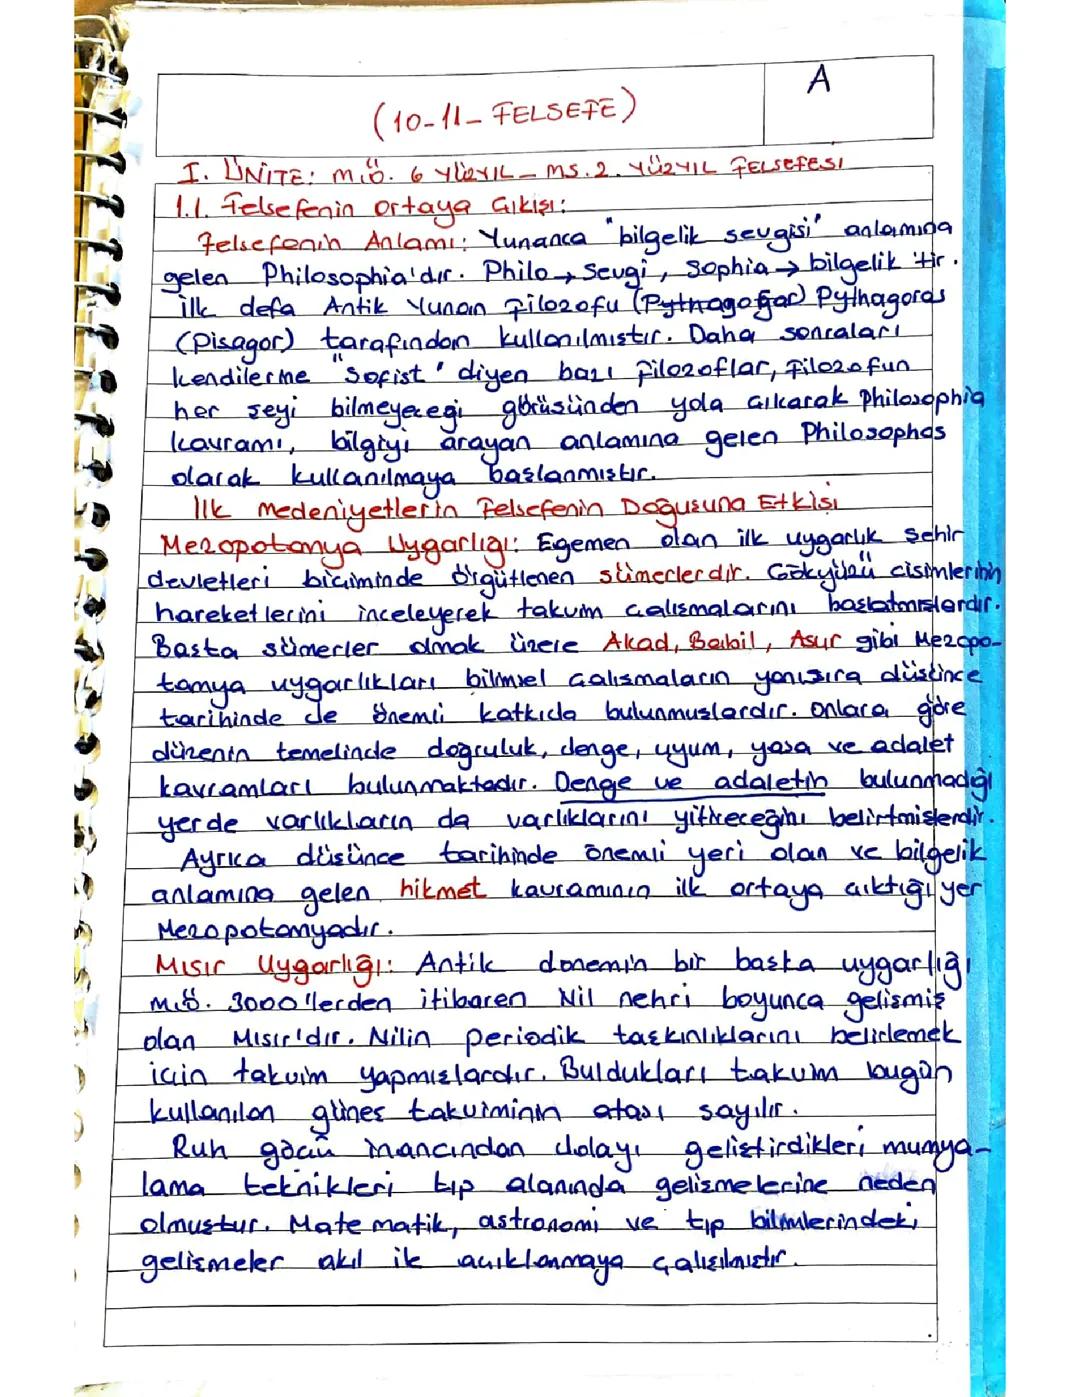 A
(10-11- FELSEFE)
I. ÜNİTE: M.Ö. 6 YÜZYIL - MS. 2. YÜZYIL FELSEFESİ
1.1. Felsefenin ortaya Çıkışı:
Felsefenin Anlamı: Yunanca "bilgelik sevgisi" anlamına
gelen Philosophia'dır. Philo → Sevgi, Sophia → bilgelik 'tir.
ilk defa Antik Yunan Filozofu (Pythagoğar) Pythagoras
(Pisagor) tarafından kullanılmıştır. Daha sonraları
kendilerine "Sofist" diyen bazı filozoflar, Filozofun
her şeyi bilmeyeceği görüşünden yola çıkarak Philosophia
kavramı, bilgiyi arayan anlamına gelen Philosophos
olarak kullanılmaya başlanmıştır.
İlk medeniyetlerin Felsefenin Doğuşuna Etkisi
Mezopotamya Uygarlığı: Egemen olan ilk uygarlık şehir
devletleri biçiminde örgütlenen sümerlerdir. Gökyüzü cisimlerinin
hareketlerini inceleyerek takvim çalışmalarını başlatmışlardır.
Başta sümerler olmak üzere Akad, Babil, Asur gibi Mezopo-
tamya uygarlıkları bilimsel çalışmaların yanısıra düşünce
tarihinde de önemli katkıda bulunmuşlardır. Onlara göre
düzenin temelinde doğruluk, denge, uyum, yasa ve adalet
kavramları bulunmaktadır. Denge ve adaletin bulunmadığı
yerde varlıkların da varlıklarını yitireceğini belirtmişlerdir.
Ayrıca düşünce tarihinde önemli yeri olan ve bilgelik
anlamına gelen hikmet kavramının ilk ortaya çıktığı yer
Mezopotamyadır.
Mısır Uygarlığı: Antik dönemin bir başka uygarlığı
M.Ö. 3000'lerden itibaren Nil nehri boyunca gelişmiş
olan Mısır'dır. Nilin periodik taşkınlıklarını belirlemek
için takvim yapmışlardır. Buldukları takvim bugün
kullanılan güneş takviminin atası sayılır.
Ruh göçü inancından dolayı geliştirdikleri mumya-
lama teknikleri tıp alanında gelişmelerine neden
olmuştur. Matematik, astronomi ve tıp bilimlerindeki
gelişmeler akıl ile açıklanmaya çalışılmıştır.